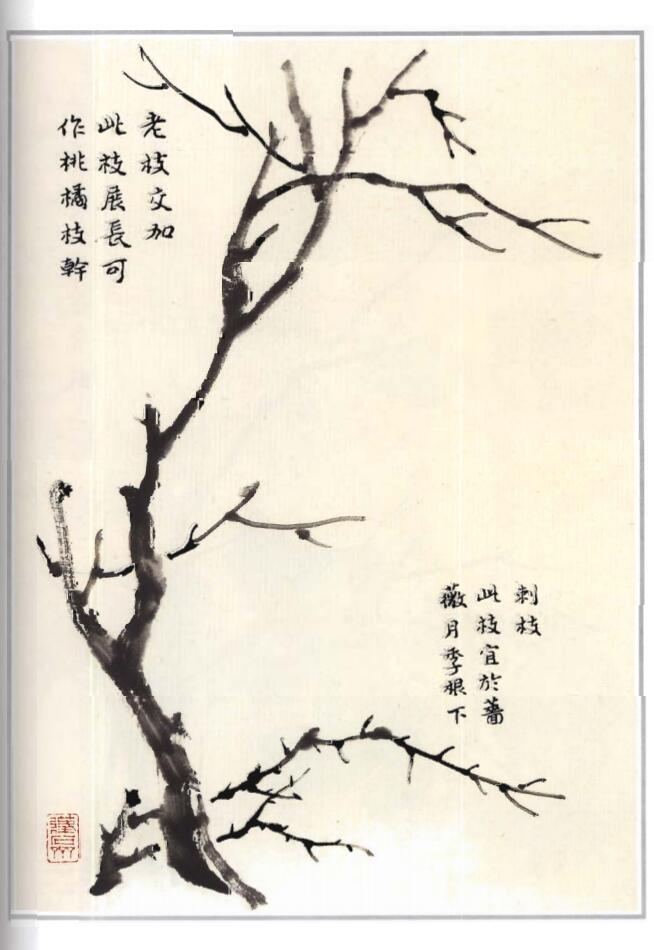 老枝交加
此枝展長可
作桃橘枝幹
刺枝
此枝宜於薔
薇月季根下